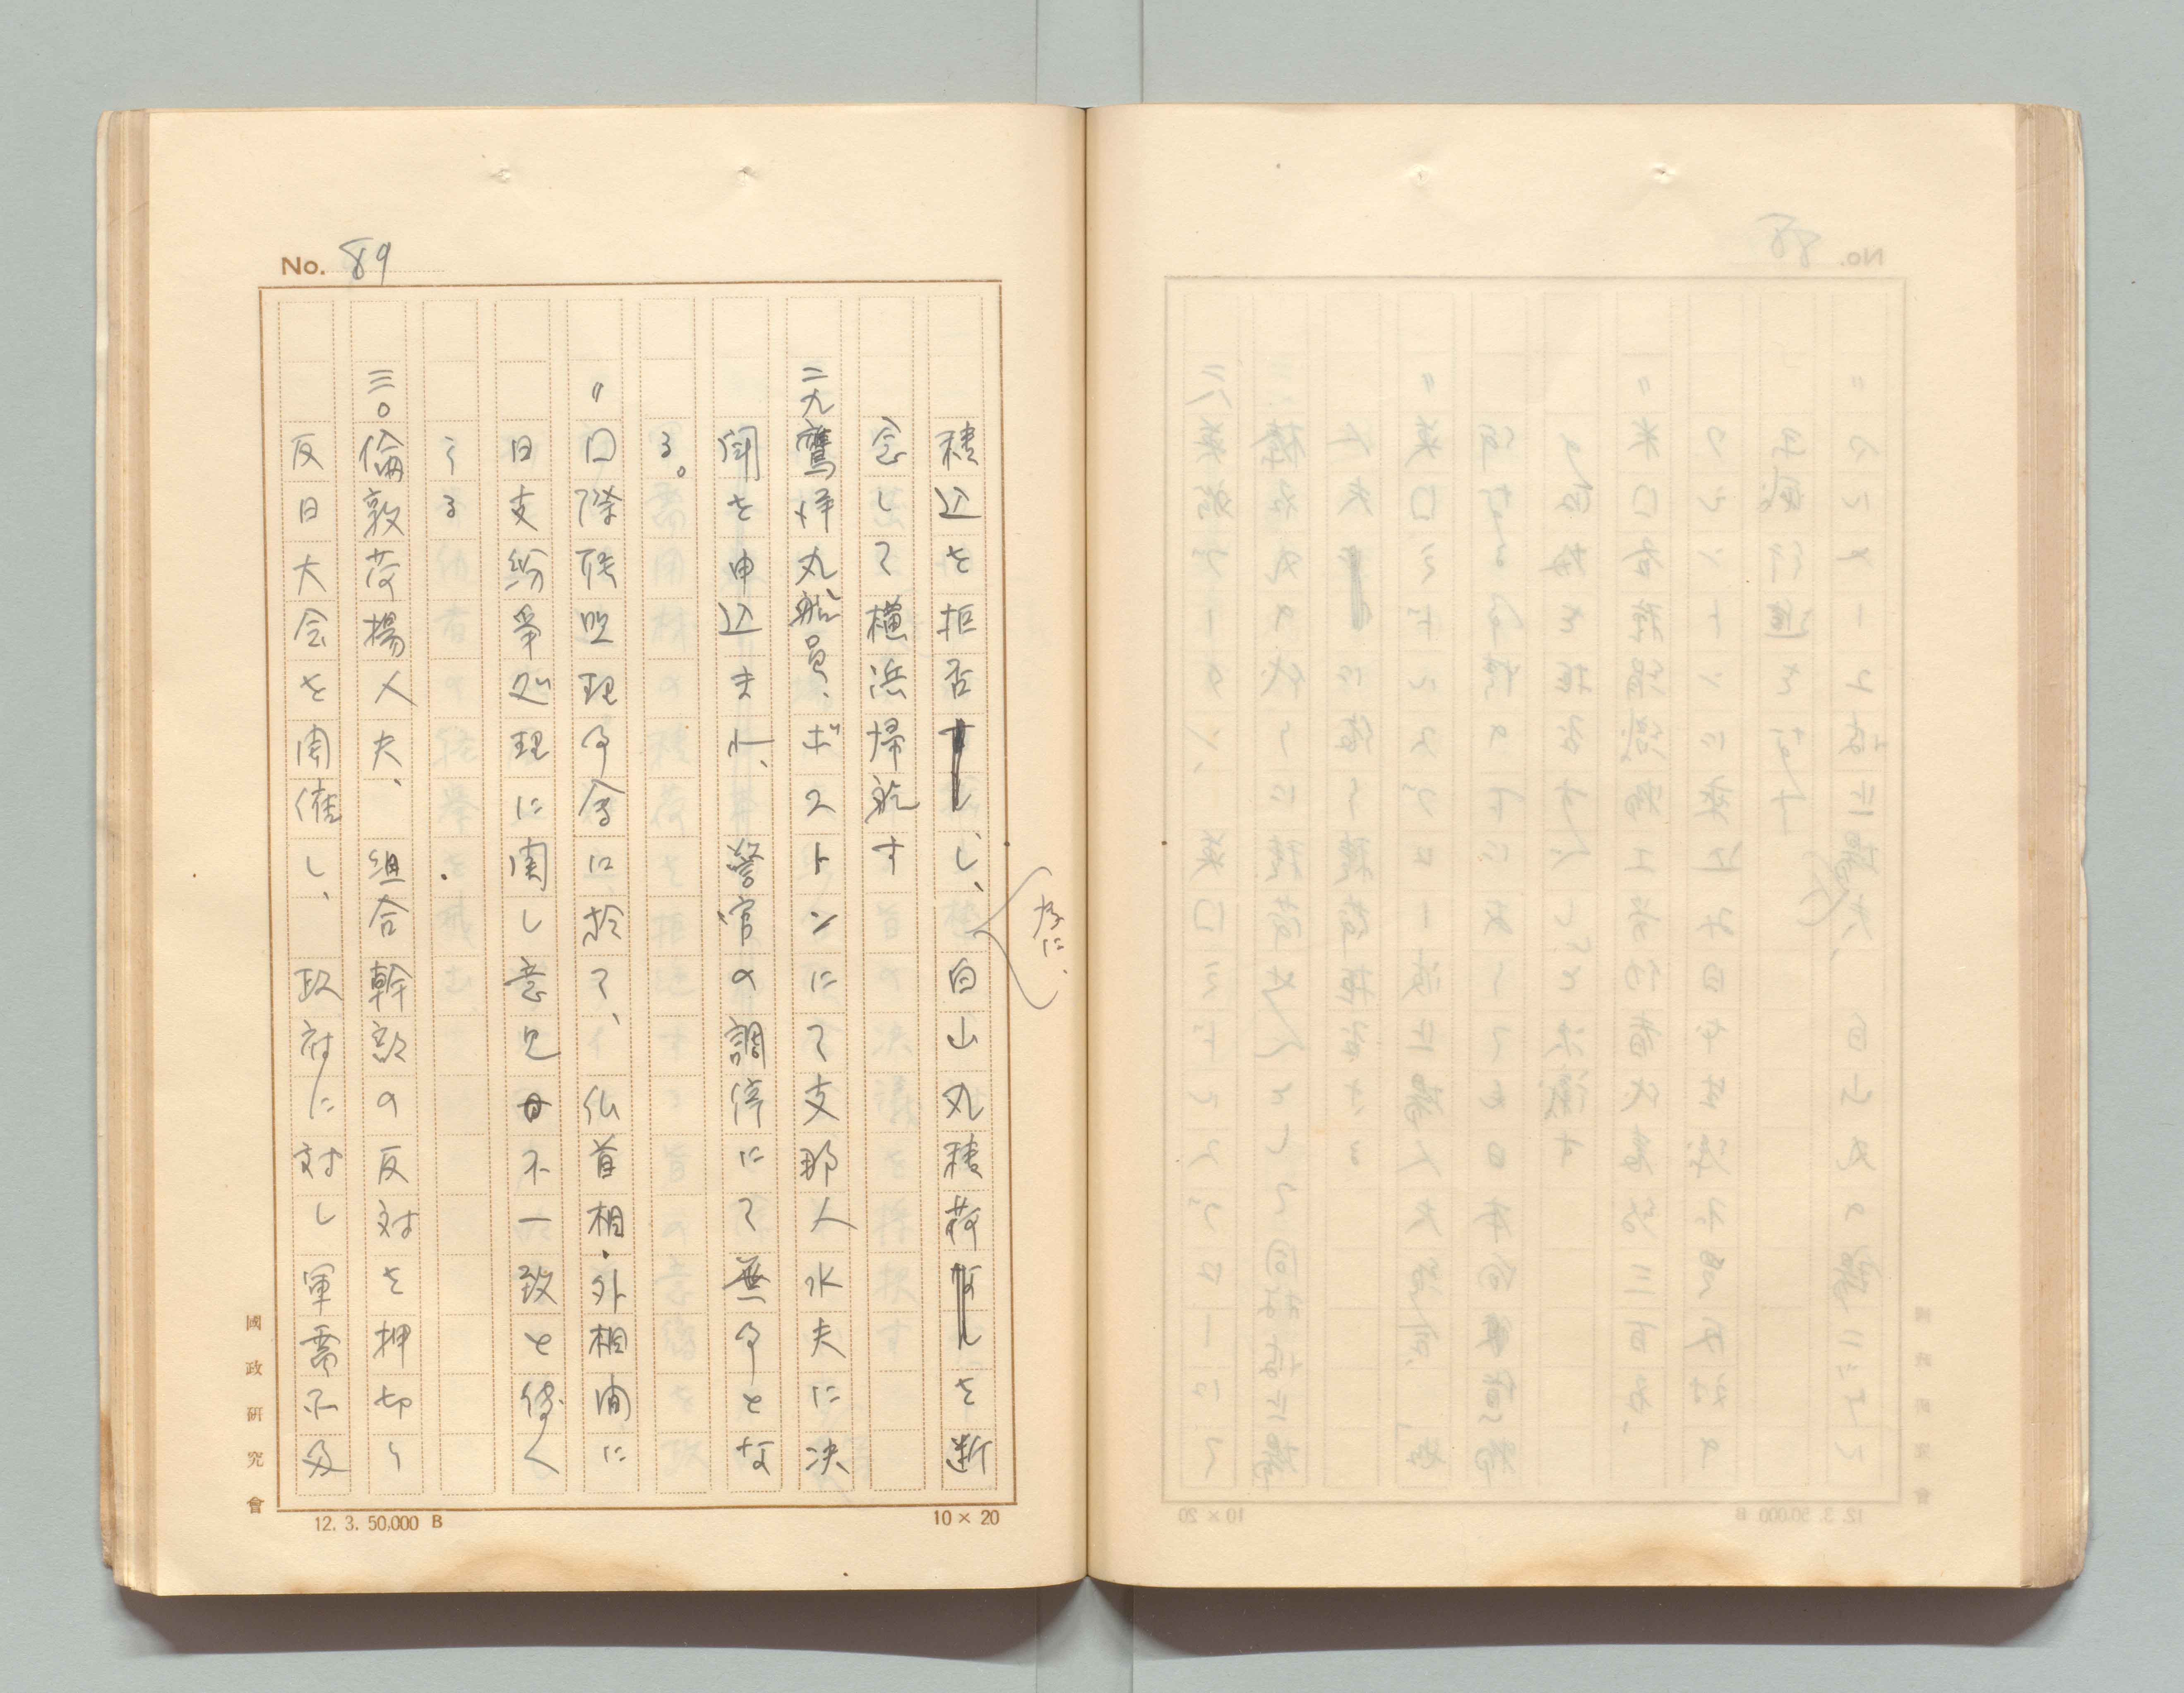 No. 89
積込を拒否し、為に、白山丸積荷を断
念して横浜帰航す
二九 鷹洋丸船員、ボストンにて支那人水夫に決
闘を申込まれ、警官の調停にて無事とな
る。
〃 囗際聯盟理事会に於て、仏首相・外相間に
日支紛争処理に関し意見不一致と伝へ
らる
三〇 倫敦荷揚人夫、組合幹部の反対を押切り
反日大会を開催し、政府に対し軍需品及
國政研究會
12. 3. 50,000 B
10 × 20